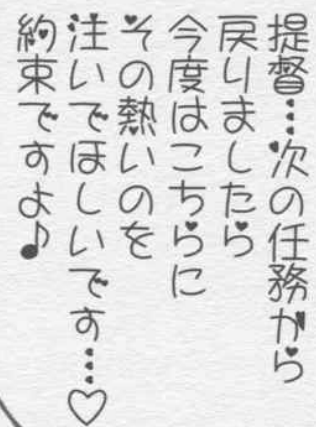 提督…次の任務から
戻りましたら
今度はこちらに
その熱いのを
注いでほしいです…♡
約束ですよ♪